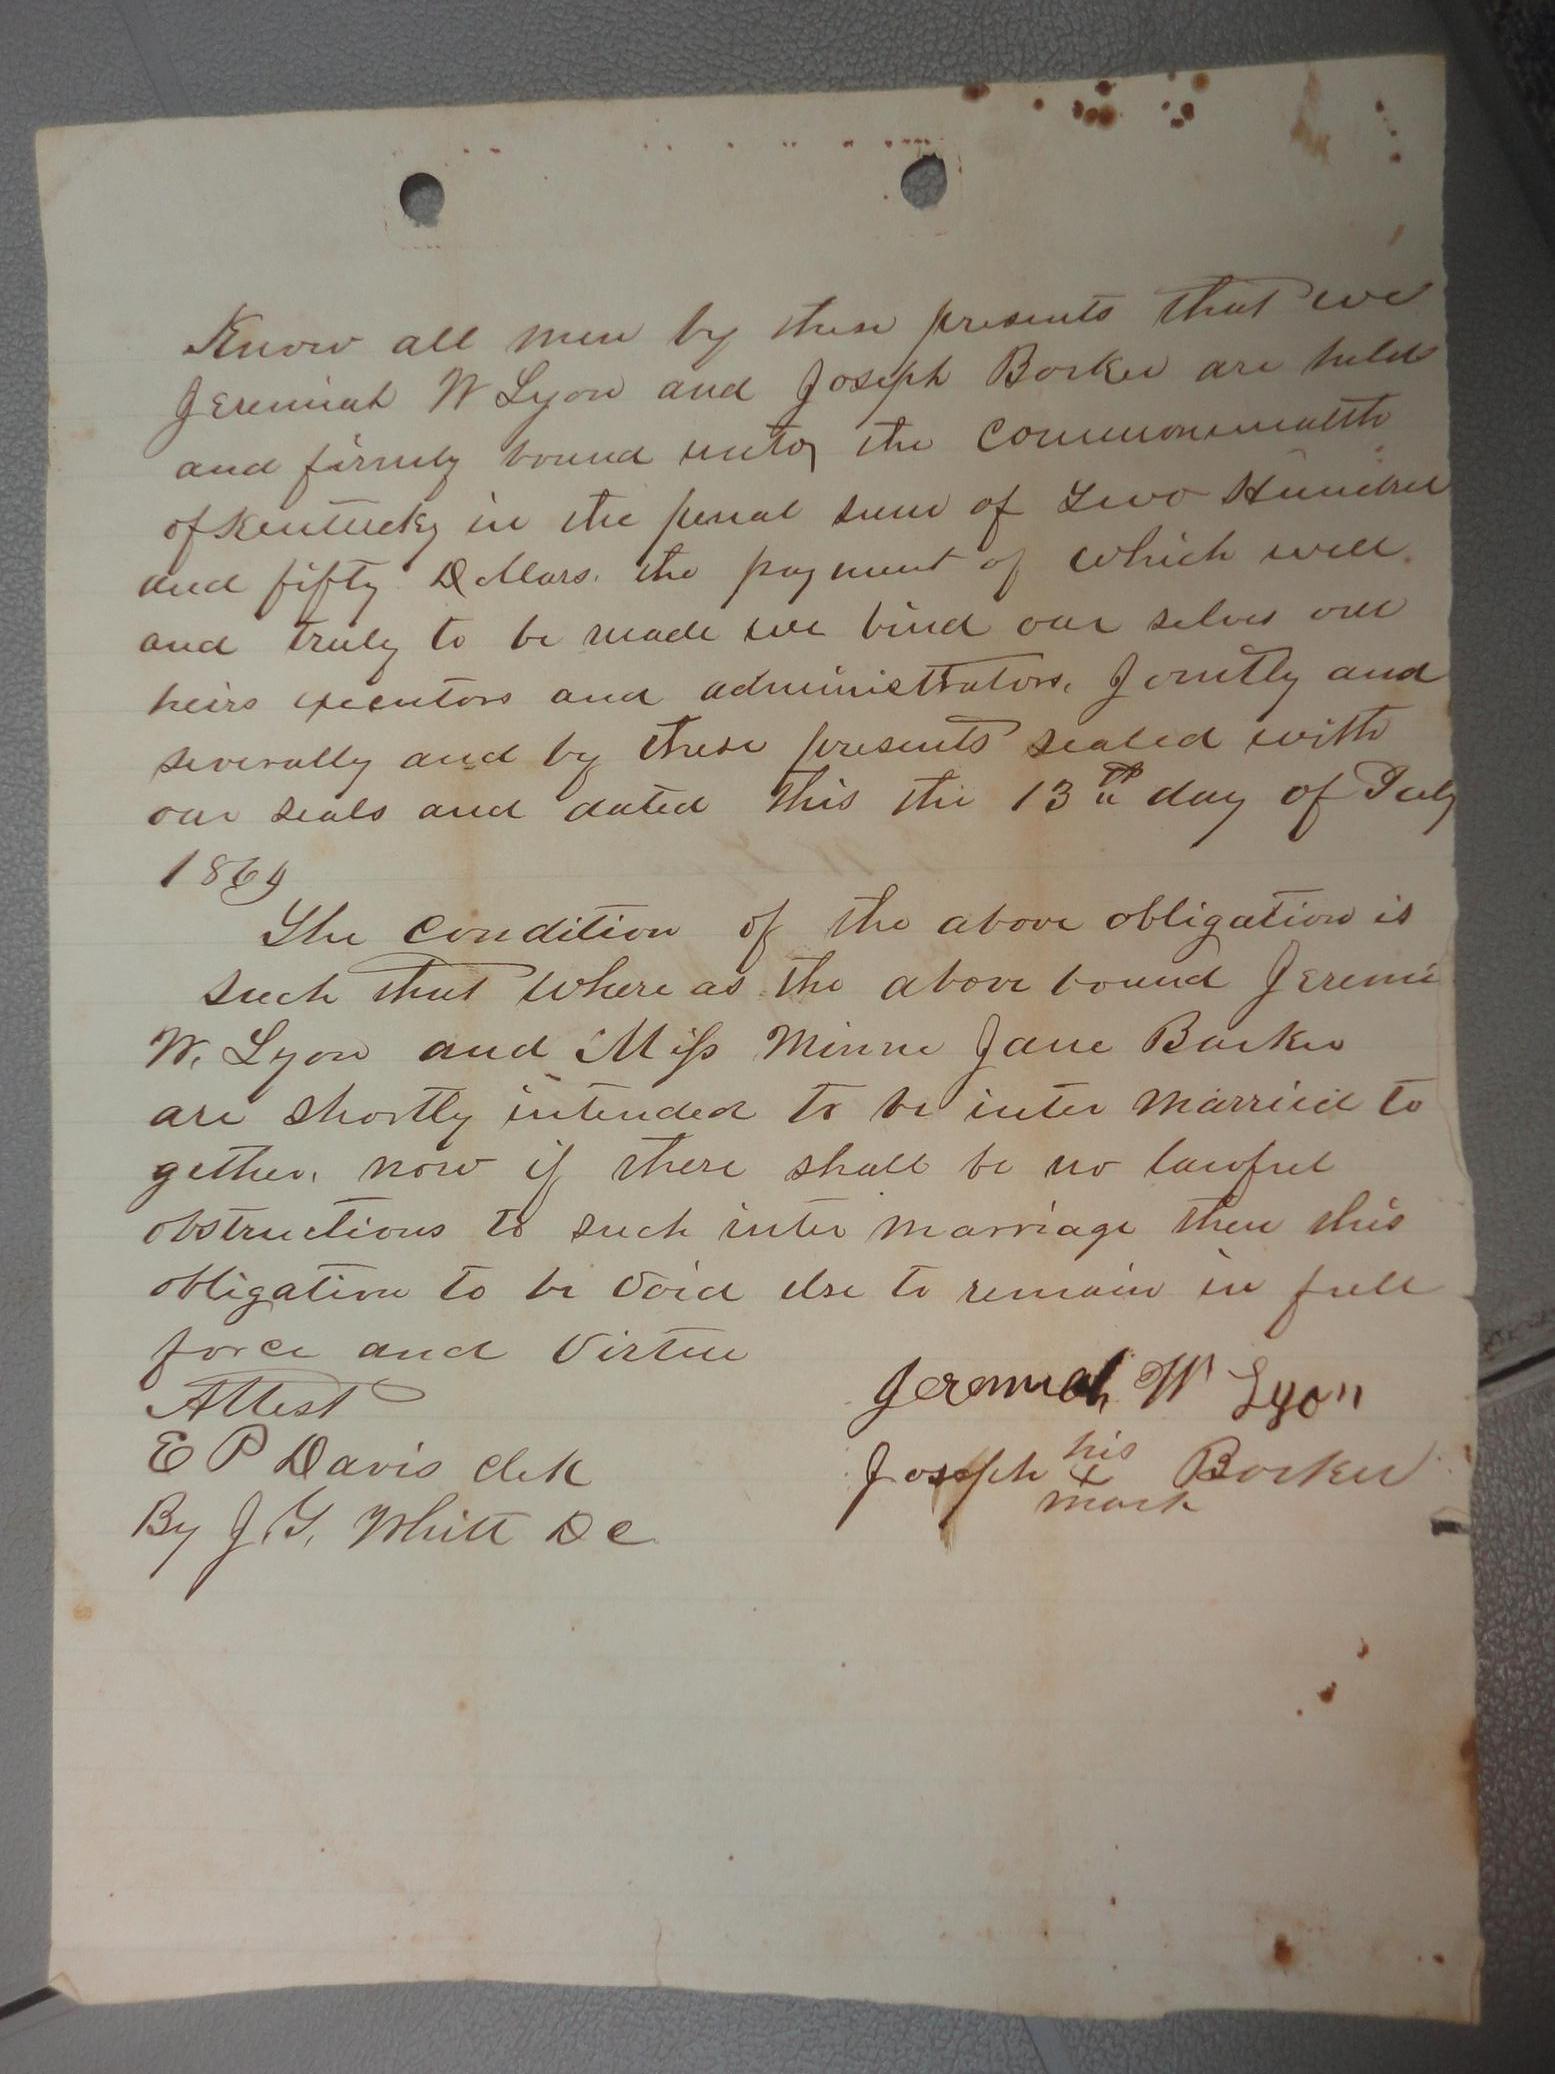 Know all men by these presents that we
Jeremiah W Lyon and Joseph Borker are held
and firmly bound unto the Commonwealth
of Kentucky in the penal sum of Two Hundred
and fifty Dollars. the payment of which well
and truly to be made we bind our selves our
heirs executors and administrators. Jointly and
severally and by these presents sealed with
our seals and dated this the 13th day of July
1864
The condition of the above obligation is
such that where as the above bound Jeremi
W. Lyon and Miss Minne Jane Barker
are shortly intended to be inter married to
gether. now if there shall be no lawful
obstructions to such inter marriage then this
obligation to be void else to remain in full
force and virtue
Attest
E P Davis Clk
By J. Y. Whitt D C
Jeremiah W Lyon
Joseph his x mark Borker